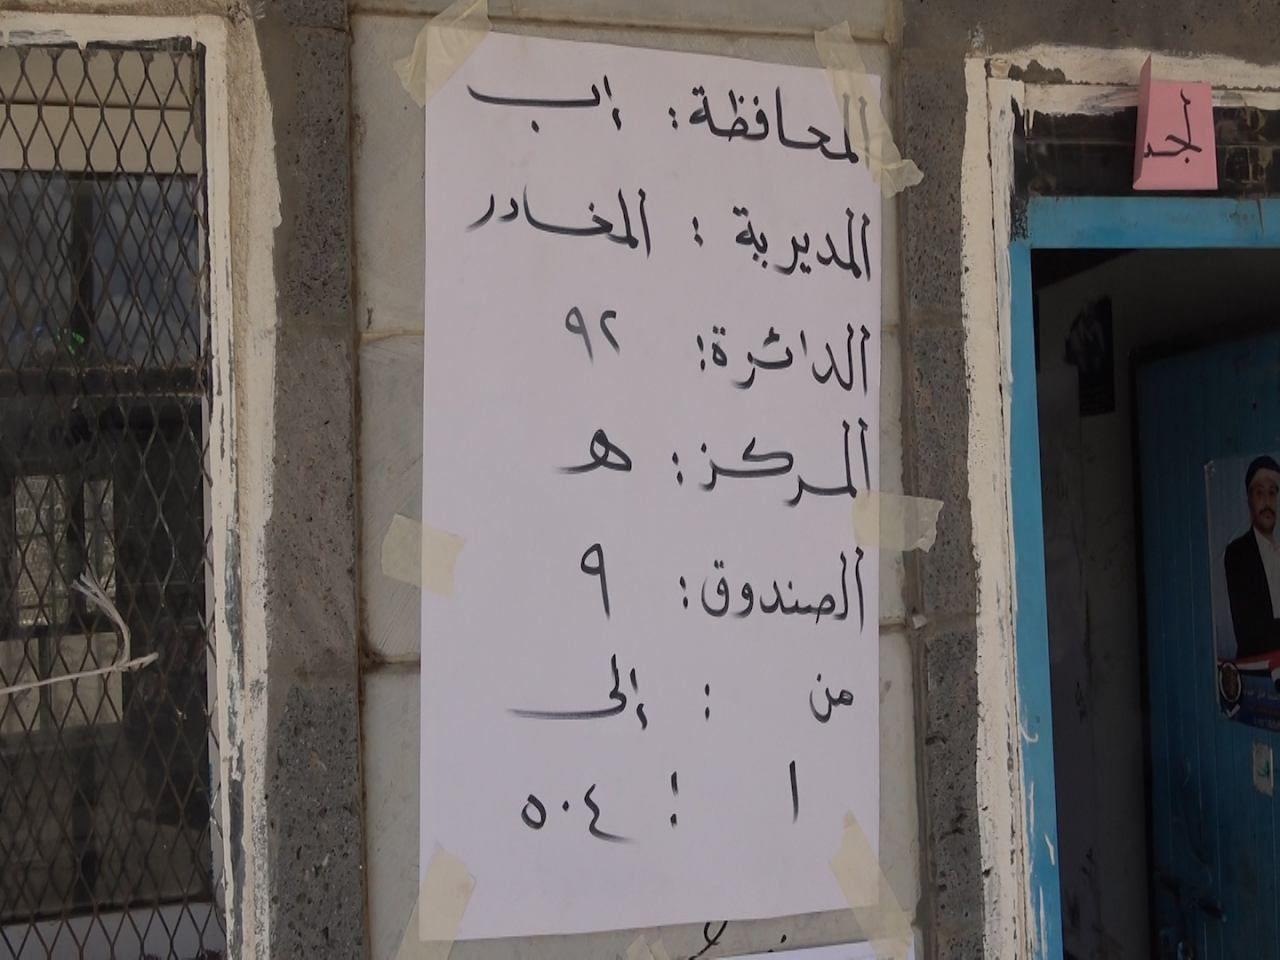 المحافظة: إب
المديرية: المخادر
الدائرة: ٩٢
المركز: هـ
الصندوق: ٩
من : إلى
١ : ٥٠٤